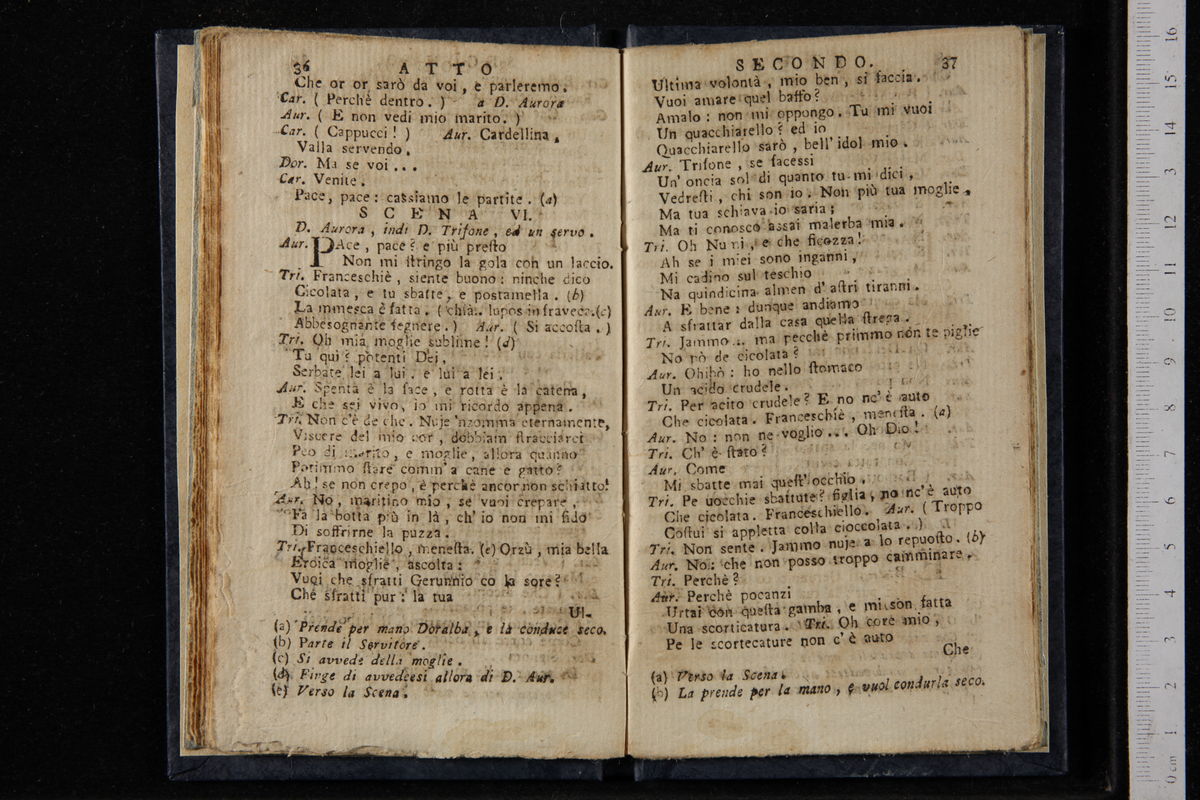 36 ATTO
Che or or sarò da voi, e parleremo.
Car. ( Perchè dentro. ) a D. Aurora
Aur. ( E non vedi mio marito. )
Car. ( Cappucci! ) Aur. Cardellina,
Valla servendo.
Dor. Ma se voi ...
Car. Venite.
Pace, pace: cassiamo le partite. (a)
SCENA VI.
D. Aurora, indi D. Trifone, ed un servo.
Aur. PAce, pace? e più presto
Non mi stringo la gola con un laccio.
Tri. Franceschiè, siente buono: ninche dico
Cicolata, e tu sbatte, e postamella. (b)
La mmesca è fatta. ( chia.. lupos in fraveco.(c)
Abbesognante fegnere. ) Aur. ( Si accosta. )
Tri. Oh mia moglie sublime! (d)
Tu qui? potenti Dei,
Serbate lei a lui, e lui a lei.
Aur. Spenta è la face, e rotta è la catena,
E che sei vivo, io mi ricordo appena.
Tri. Non c'è de che. Nuje 'nzomma eternamente,
Viscere del mio cor, dobbiam stracciarci
Peo di marito, e moglie, allora quanno
Potimmo stare comm' a cane e gatto?
Ah! se non crepo, è perchè ancor non schiatto!
Aur. No, maritino mio, se vuoi crepare,
Fa la botta più in là, ch' io non mi fido
Di soffrirne la puzza.
Tri. Franceschiello, menesta. (e) Orzù, mia bella
Eroica moglie, ascolta:
Vuoi che sfratti Gerunnio co la sore?
Che sfratti pur: la tua
Ul-
(a) Prende per mano Doralba, e la conduce seco.
(b) Parte il Servitore.
(c) Si avvede della moglie.
(d) Finge di avvedersi allora di D. Aur.
(e) Verso la Scena.
SECONDO. 37
Ultima volontà, mio ben, si faccia.
Vuoi amare quel baffo?
Amalo: non mi oppongo. Tu mi vuoi
Un quacchiarello? ed io
Quacchiarello sarò, bell' idol mio.
Aur. Trifone, se facessi
Un' oncia sol di quanto tu mi dici,
Vedresti, chi son io. Non più tua moglie,
Ma tua schiava io saria;
Ma ti conosco assai malerba mia.
Tri. Oh Numi, e che ficozza!
Ah se i miei sono inganni,
Mi cadino sul teschio
Na quindicina almen d' astri tiranni.
Aur. E bene: dunque andiamo
A sfrattar dalla casa quella strega.
Tri. Jammo ... ma pecchè primmo non te piglie
No pò de cicolata?
Aur. Ohibò: ho nello stomaco
Un acido crudele.
Tri. Per acito crudele? E no nc' è auto
Che cicolata. Franceschiè, menesta. (a)
Aur. No: non ne voglio ... Oh Dio!
Tri. Ch' è stato?
Aur. Come
Mi sbatte mai quest' occhio.
Tri. Pe uocchie sbattute? figlia, no nc'è auto
Che cicolata. Franceschiello. Aur. ( Troppo
Costui si appletta colla cioccolata. )
Tri. Non sente. Jammo nuje a lo repuosto. (b)
Aur. No: che non posso troppo camminare.
Tri. Perchè?
Aur. Perchè pocanzi
Urtai con questa gamba, e mi son fatta
Una scorticatura. Tri. Oh core mio,
Pe le scortecature non c' è auto
Che
(a) Verso la Scena.
(b) La prende per la mano, e vuol condurla seco.
0 cm 1 2 3 4 5 6 7 8 9 10 11 12 13 14 15 16